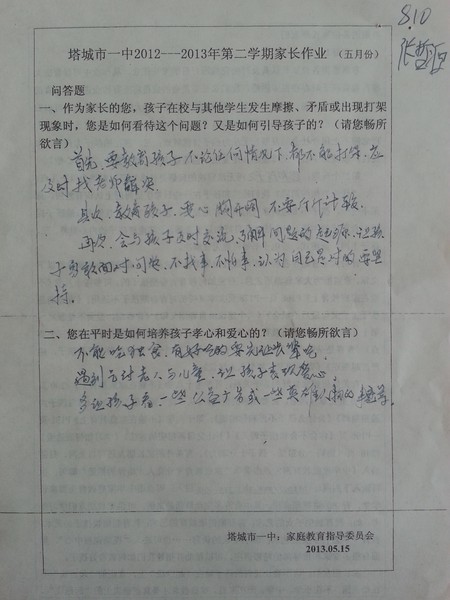 8.10
塔城市一中2012---2013年第二学期家长作业 (五月份)
问答题
一、作为家长的您,孩子在校与其他学生发生摩擦、矛盾或出现打架
现象时,您是如何看待这个问题?又是如何引导孩子的?(请您畅所
欲言)
首先,要教育孩子不论任何情况下都不能打架,应
及时找老师解决。
其次,教育孩子,要心胸开阔,不要斤斤计较。
再次,会与孩子及时交流,了解问题的起源,让孩
子勇敢面对问题,不找事,不怕事,认为自己是对的要坚
持。
二、您在平时是如何培养孩子孝心和爱心的?(请您畅所欲言)
不能吃独食,有好吃的要先让长辈吃,
遇到 老人与儿童,让孩子表现爱心,
多让孩子看一些公益广告或一些英雄人物的事迹等。
塔城市一中:家庭教育指导委员会
2013.05.15